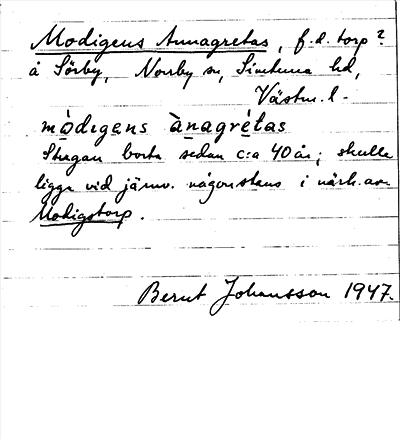 Modigens Annagretas, f.d. torp?
å Sörby, Norrby sn, Simtuna hd,
Västm. l.
mòdıgens ànagrétas
Stugan borta sedan c:a 40 år; skulle
ligga vid järnv. någonstans i närh. av
Modigstorp.
Bernt Johansson 1947.